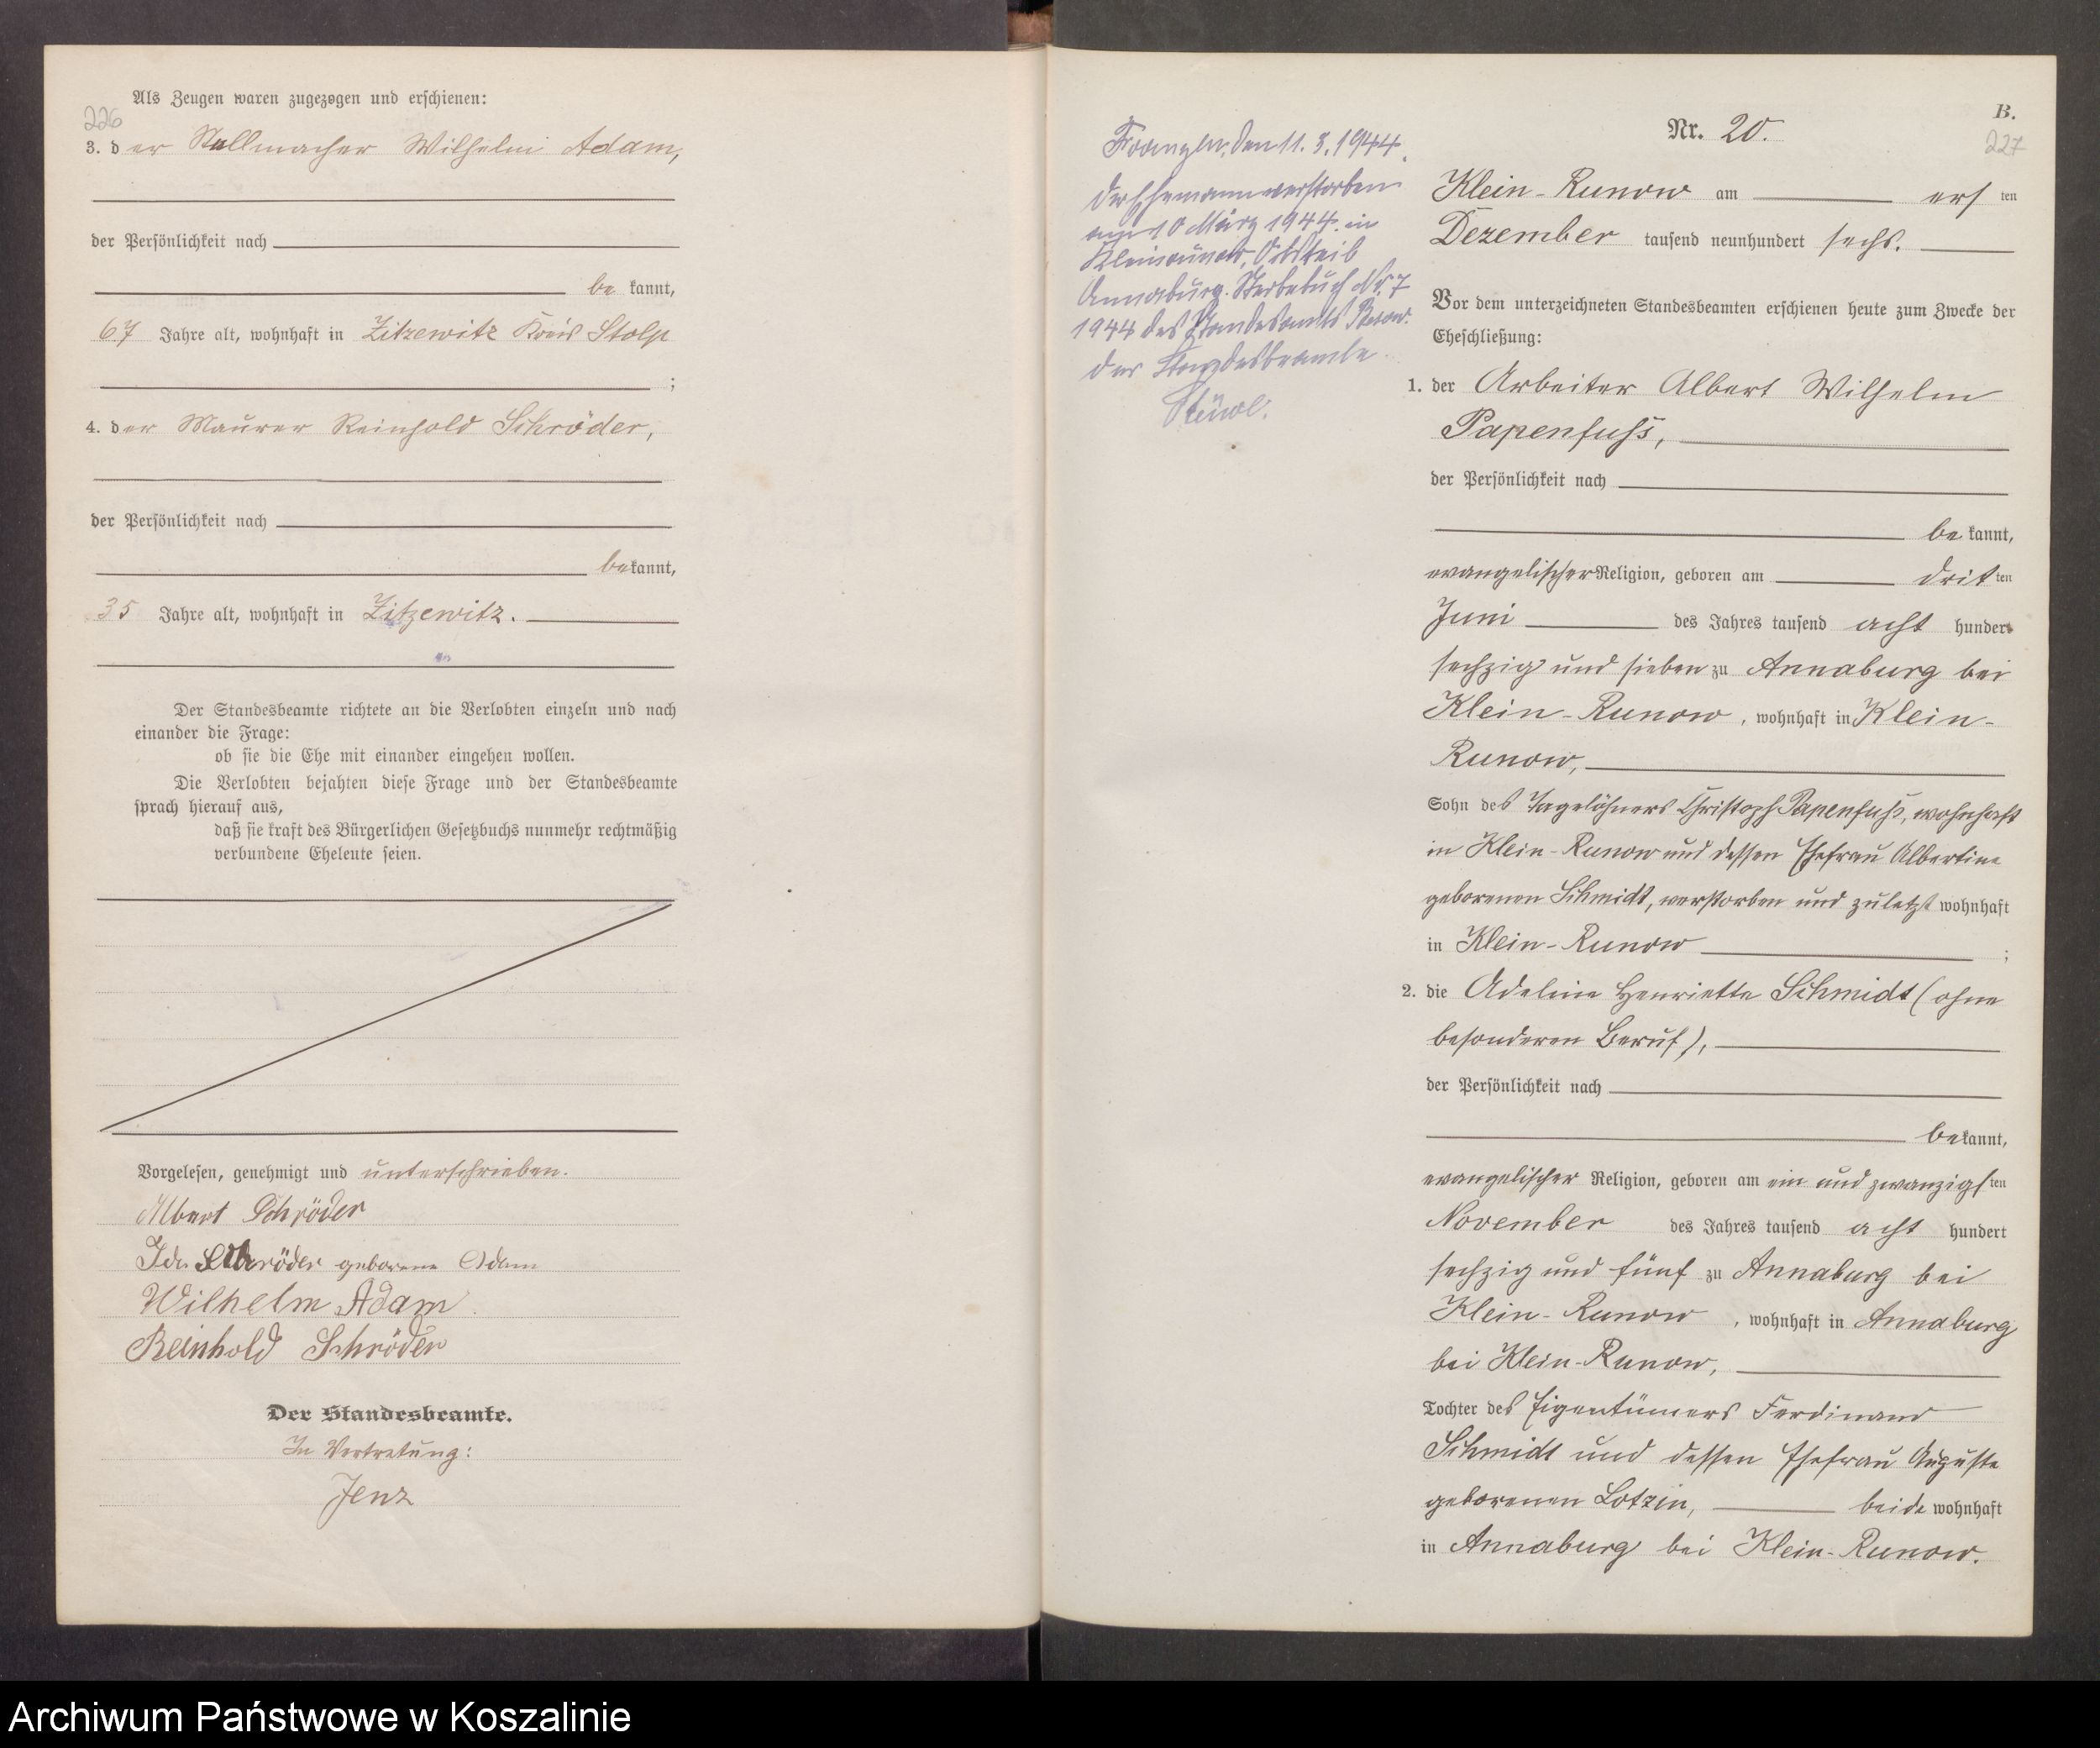 226
Als Zeugen waren zugezogen und erschienen:
3. der Stellmacher Wilhelm Adam,
der Persönlichkeit nach
be kannt,
67 Jahre alt, wohnhaft in Zitzewitz Kreis Stolp
;
4. der Maurer Reinhold Schröder,
der Persönlichkeit nach
bekannt,
35 Jahre alt, wohnhaft in Zitzewitz.
Der Standesbeamte richtete an die Verlobten einzeln und nach
einander die Frage:
ob sie die Ehe mit einander eingehen wollen.
Die Verlobten bejahten diese Frage und der Standesbeamte
sprach hierauf aus,
daß sie kraft des Bürgerlichen Gesetzbuchs nunmehr rechtmäßig
verbundene Eheleute seien.
Vorgelesen, genehmigt und unterschrieben.
Albert Schröder
Ida Schröder geborene Adam
Wilhelm Adam
Reinhold Schröder
Der Standesbeamte.
In Vertretung:
Jenz
den 11. 3. 1944.
Der Ehemann verstorben
am 10 März 1944 in
Kleinrunow, Ortsteil
Annaburg. Sterbebuch Nr. 7
1944 des Standesamts
der Standesbeamte
B.
227
Nr. 20.
Klein-Runow am ersten
Dezember tausend neunhundert sechs.
Vor dem unterzeichneten Standesbeamten erschienen heute zum Zwecke der
Eheschließung:
1. der Arbeiter Albert Wilhelm
Papenfuss,
der Persönlichkeit nach
be kannt,
evangelischer Religion, geboren am dritten
Juni des Jahres tausend acht hundert
sechzig und sieben zu Annaburg bei
Klein-Runow, wohnhaft in Klein-
Runow,
Sohn des Tagelöhners Christoph Papenfuss, wohnhaft
in Klein-Runow und dessen Ehefrau Albertine
geborenen Schmidt, verstorben und zuletzt wohnhaft
in Klein-Runow ;
2. die Adeline Henriette Schmidt (ohne
besonderen Beruf),
der Persönlichkeit nach
bekannt,
evangelischer Religion, geboren am ein und zwanzigsten
November des Jahres tausend acht hundert
sechzig und fünf zu Annaburg bei
Klein-Runow, wohnhaft in Annaburg
bei Klein-Runow,
Tochter des Eigentümers Ferdinand
Schmidt und dessen Ehefrau Auguste
geborenen Lotzin, beide wohnhaft
in Annaburg bei Klein-Runow.
Archiwum Państwowe w Koszalinie